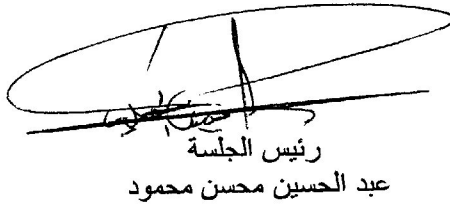 رئيس الجلسة
عبد الحسين محسن محمود